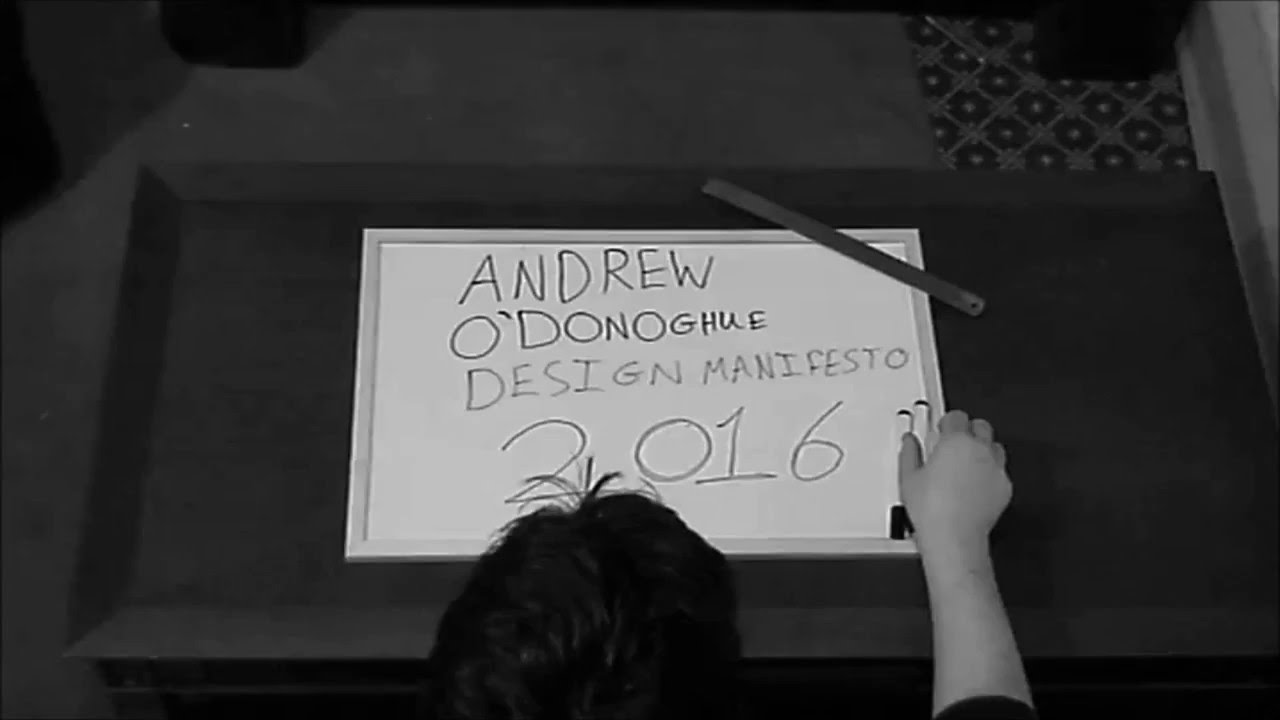 ANDREW
O'DONOGHUE
DESIGN MANIFESTO
2016